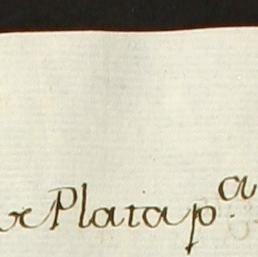 Plata p.ª